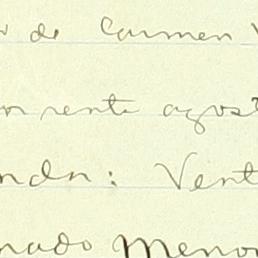 de Carmen
rente agos
ndn: Vent
nado Menor